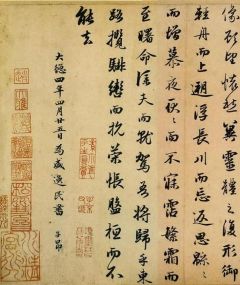 像顧望懷愁冀靈體之復形御
輕舟而上遡浮長川而忘返思緜〻
而增慕夜耿〻而不寐霑繁霜而
至曙命僕夫而就駕吾將歸乎東
路攬騑轡而抗策悵盤桓而不
能去
大德四年四月廿五日為盛逸民書
子昂